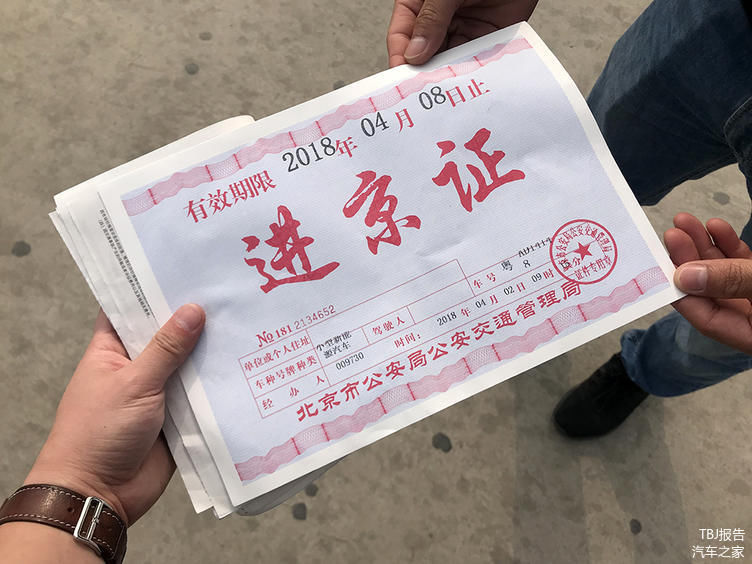 有效期限 2018年 04 月 08日止
进京证
№ 181 2134652
车号 粤
8
单位或个人住址
车种号牌种类 小型新能源汽车 驾驶人
经办人 009730 时间: 2018 年 04 月 02 日 09 时
北京市公安局公安交通管理局
证件专用章
TBJ报告
汽车之家